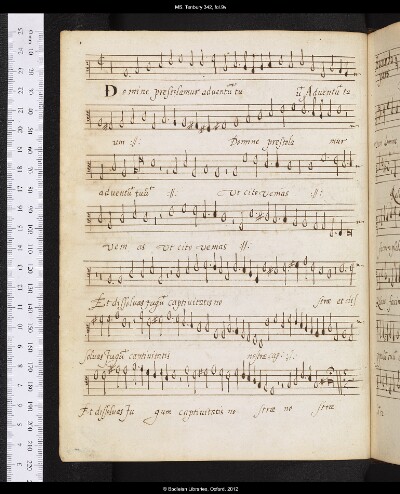 MS. Tenbury 342, fol.9v
Domine prestolamur adventū tu ū Adventū tu
um :||: Domine prestola mur
adventū tuū :||: Ut cito venias :||:
veni as Ut cito venias :||:
Et dissolvas jugū captivitatis no stræ et dis
solvas jugū captivitatis nostræ cap: :||:
Et dissolvas ju gum captivitatis no stræ no stræ
© Bodleian Libraries, Oxford, 2012